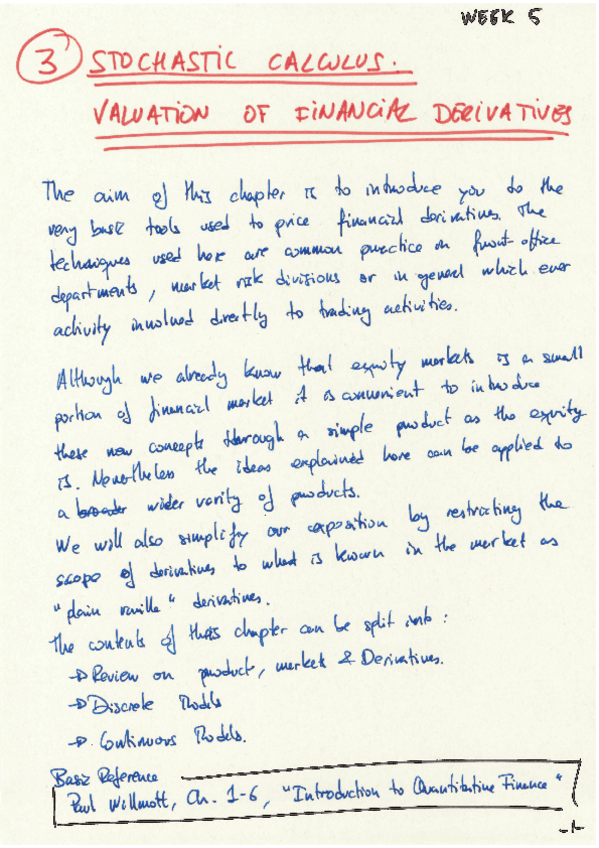 WEEK 5
3) STOCHASTIC CALCULUS.
VALUATION OF FINANCIAL DERIVATIVES
The aim of this chapter is to introduce you to the
very basic tools used to price financial derivatives. The
techniques used here are common practice on front-office
departments, market risk divisions or in general which ever
activity involved directly to trading activities.
Although we already know that equity markets is a small
portion of financial market it is convenient to introduce
these new concepts through a simple product as the equity
is. Nevertheless the ideas explained here can be applied to
a broader wider varity of products.
We will also simplify our exposition by restricting the
scope of derivatives to what is known in the market as
"plain vanilla" derivatives.
The contents of this chapter can be split into:
→ Review on product, market & Derivatives.
→ Discrete Models
→ Continuous Models.
Basic Reference
Paul Willmott, Ch. 1-6, "Introduction to Quantitative Finance"
-1-